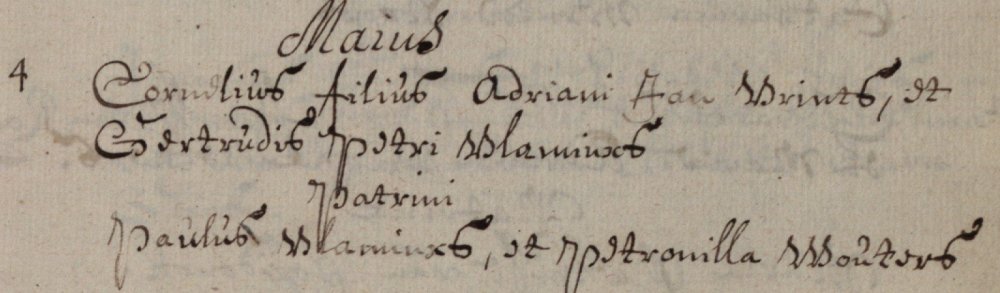 Maius
4 Cornelius filius Adriani Jan Vrints, et
Gertrudis Petri Vlaminxs
Patrini
Paulus Vlaminxs, et Petronilla Wouters